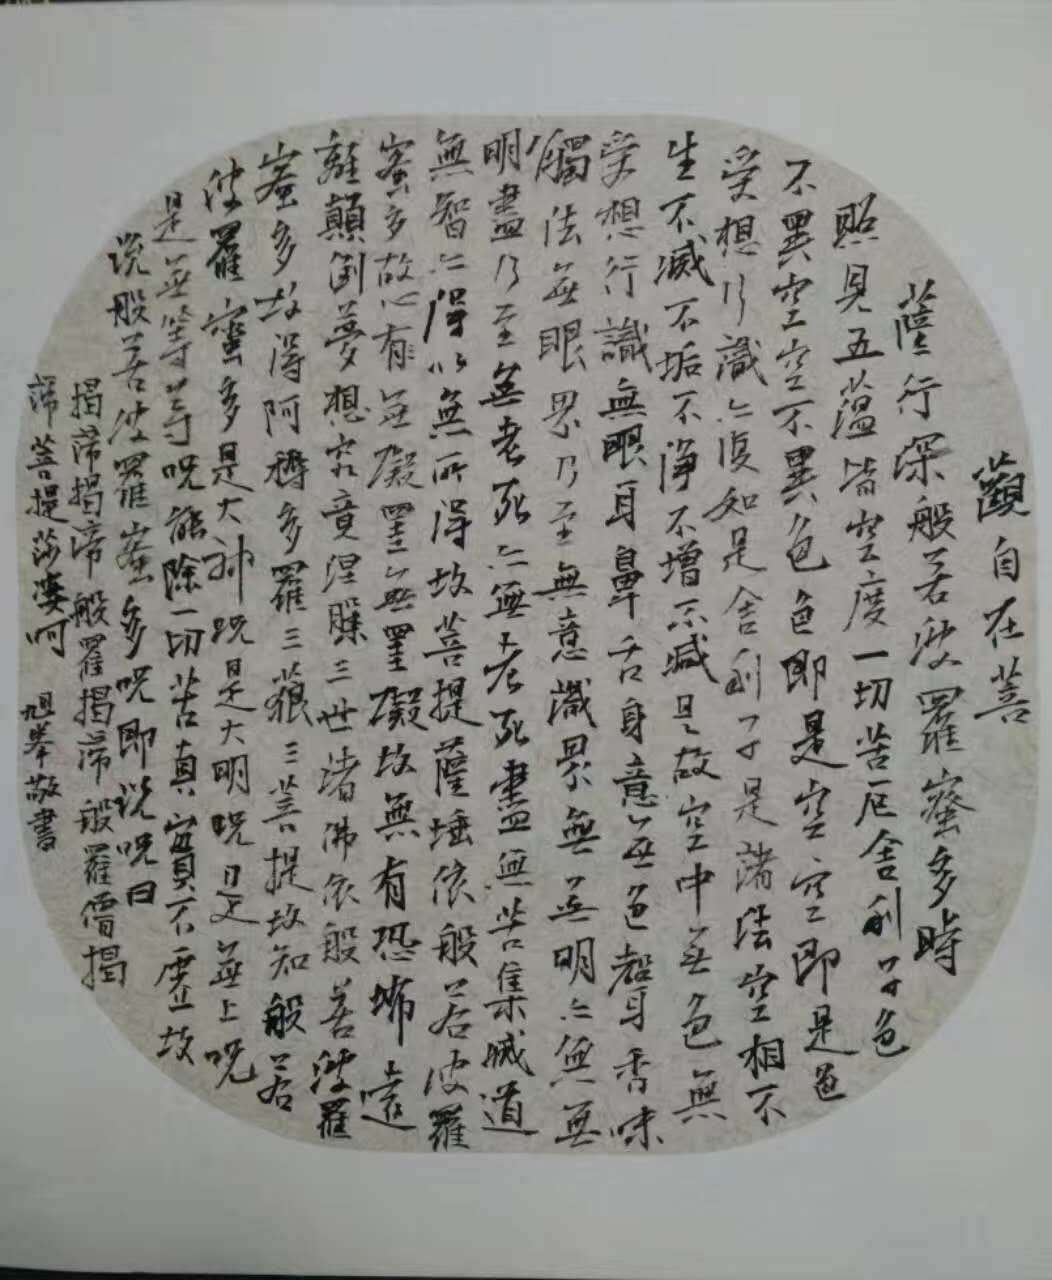 觀自在菩
薩行深般若波羅蜜多時
照見五蘊皆空度一切苦厄舍利子色
不異空空不異色色即是空空即是色
受想行識亦復如是舍利子是諸法空相不
生不滅不垢不淨不增不減是故空中無色無
受想行識無眼耳鼻舌身意無色聲香味
觸法無眼界乃至無意識界無無明亦無無
明盡乃至無老死亦無老死盡無苦集滅道
無智亦得以無所得故菩提薩埵依般若波羅
蜜多故心有無礙罣無罣礙故無有恐怖遠
離顛倒夢想究竟涅槃三世諸佛依般若波羅
蜜多故得阿耨多羅三藐三菩提故知般若
波羅蜜多是大神咒是大明咒是無上咒
是無等等咒能除一切苦真實不虛故
說般若波羅蜜多咒即說咒曰
揭諦揭諦般羅揭諦般羅僧揭
諦菩提莎婆呵 旭峯敬書